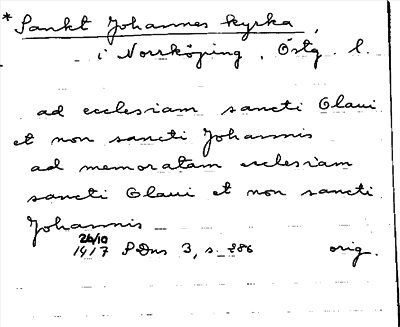 *Sankt Johannes kyrka,
i Norrköping, Östg. l.
ad ecclesiam sancti Olaui
et non sancti Johannis
ad memoratam ecclesiam
sancti Olaui et non sancti
Johannis
26/10
1417 SDns 3, s. 286 orig.